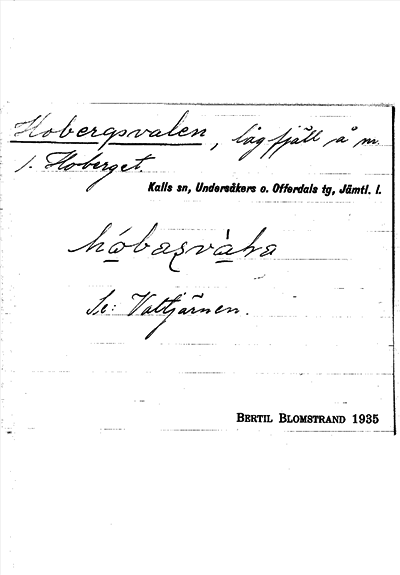 Hobergsvalen, lågfjäll å m.
1. Hoberget.
Kalls sn, Undersåkers o. Offerdals tg, Jämtl. l.
Se: Valtjärnen.
BERTIL BLOMSTRAND 1935